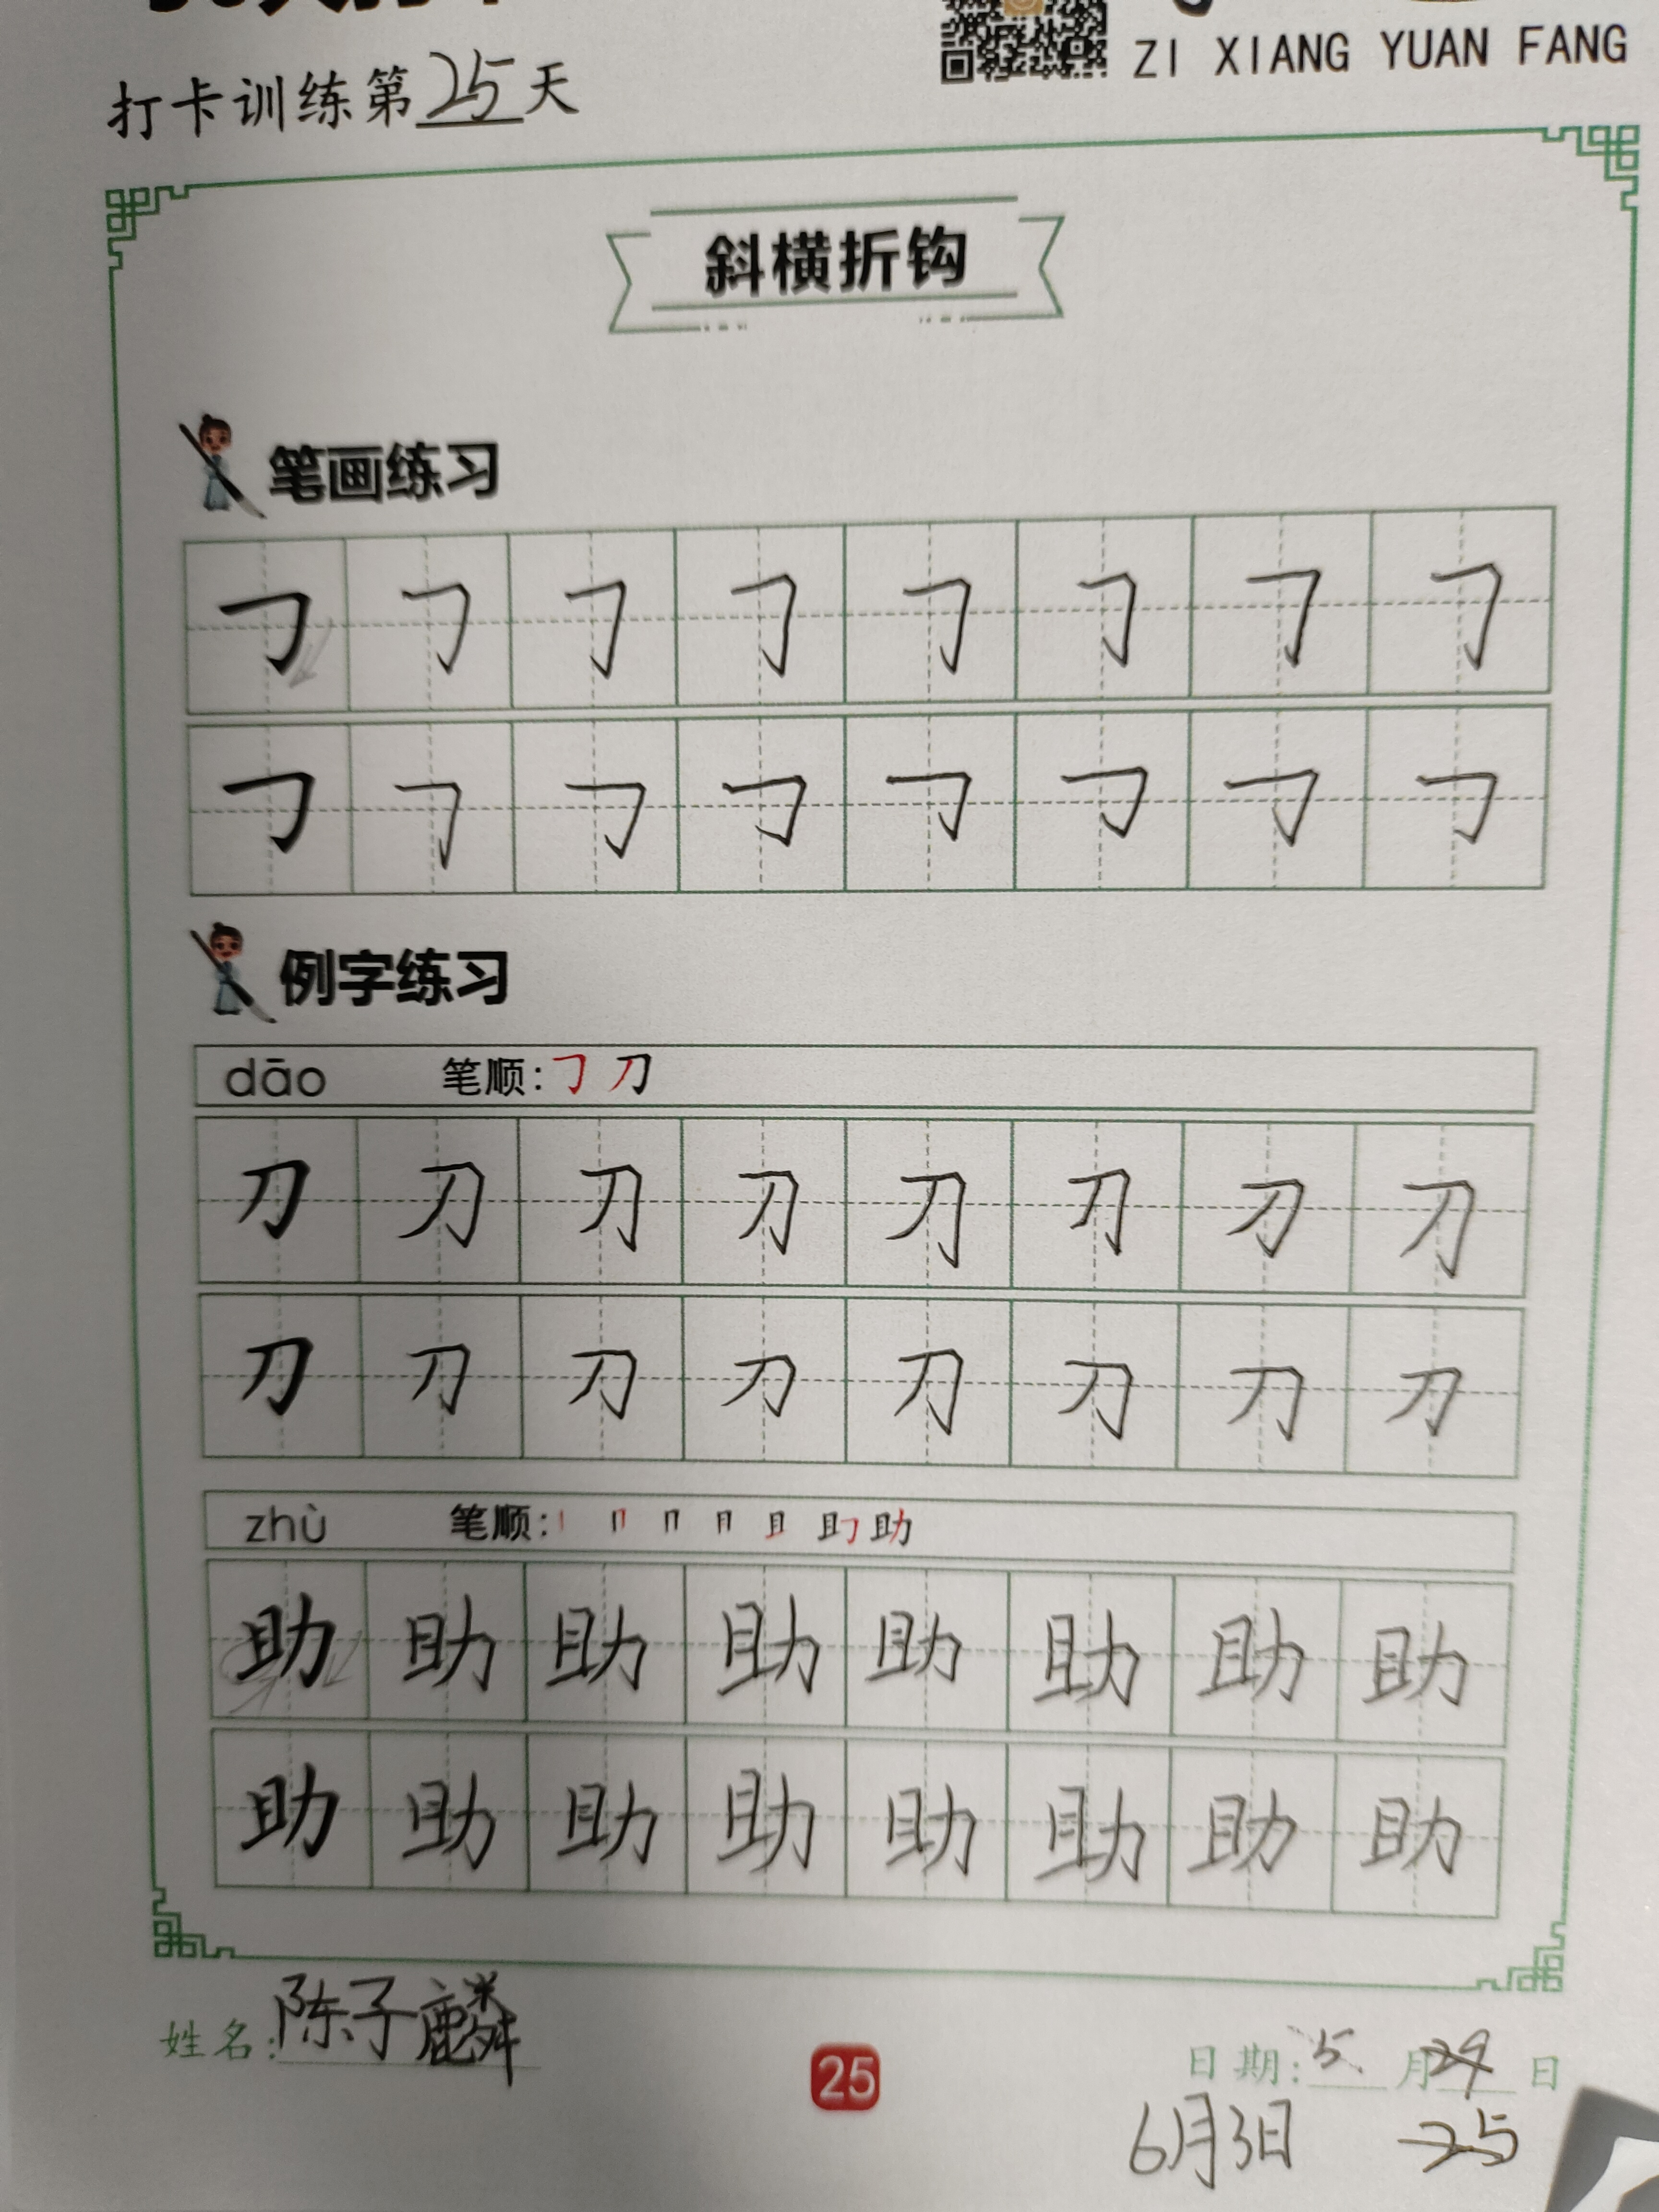 ZI XIANG YUAN FANG
打卡训练第25天
斜横折钩
笔画练习
㇆ ㇆ ㇆ ㇆ ㇆ ㇆ ㇆ ㇆
㇆ ㇆ ㇆ ㇆ ㇆ ㇆ ㇆ ㇆
例字练习
dāo 笔顺:㇆ 刀
刀 刀 刀 刀 刀 刀 刀 刀
刀 刀 刀 刀 刀 刀 刀 刀
zhù 笔顺:
助 助 助 助 助 助 助 助
助 助 助 助 助 助 助 助
姓名:陈子麟
25
日期:5月29日
6月3日 25